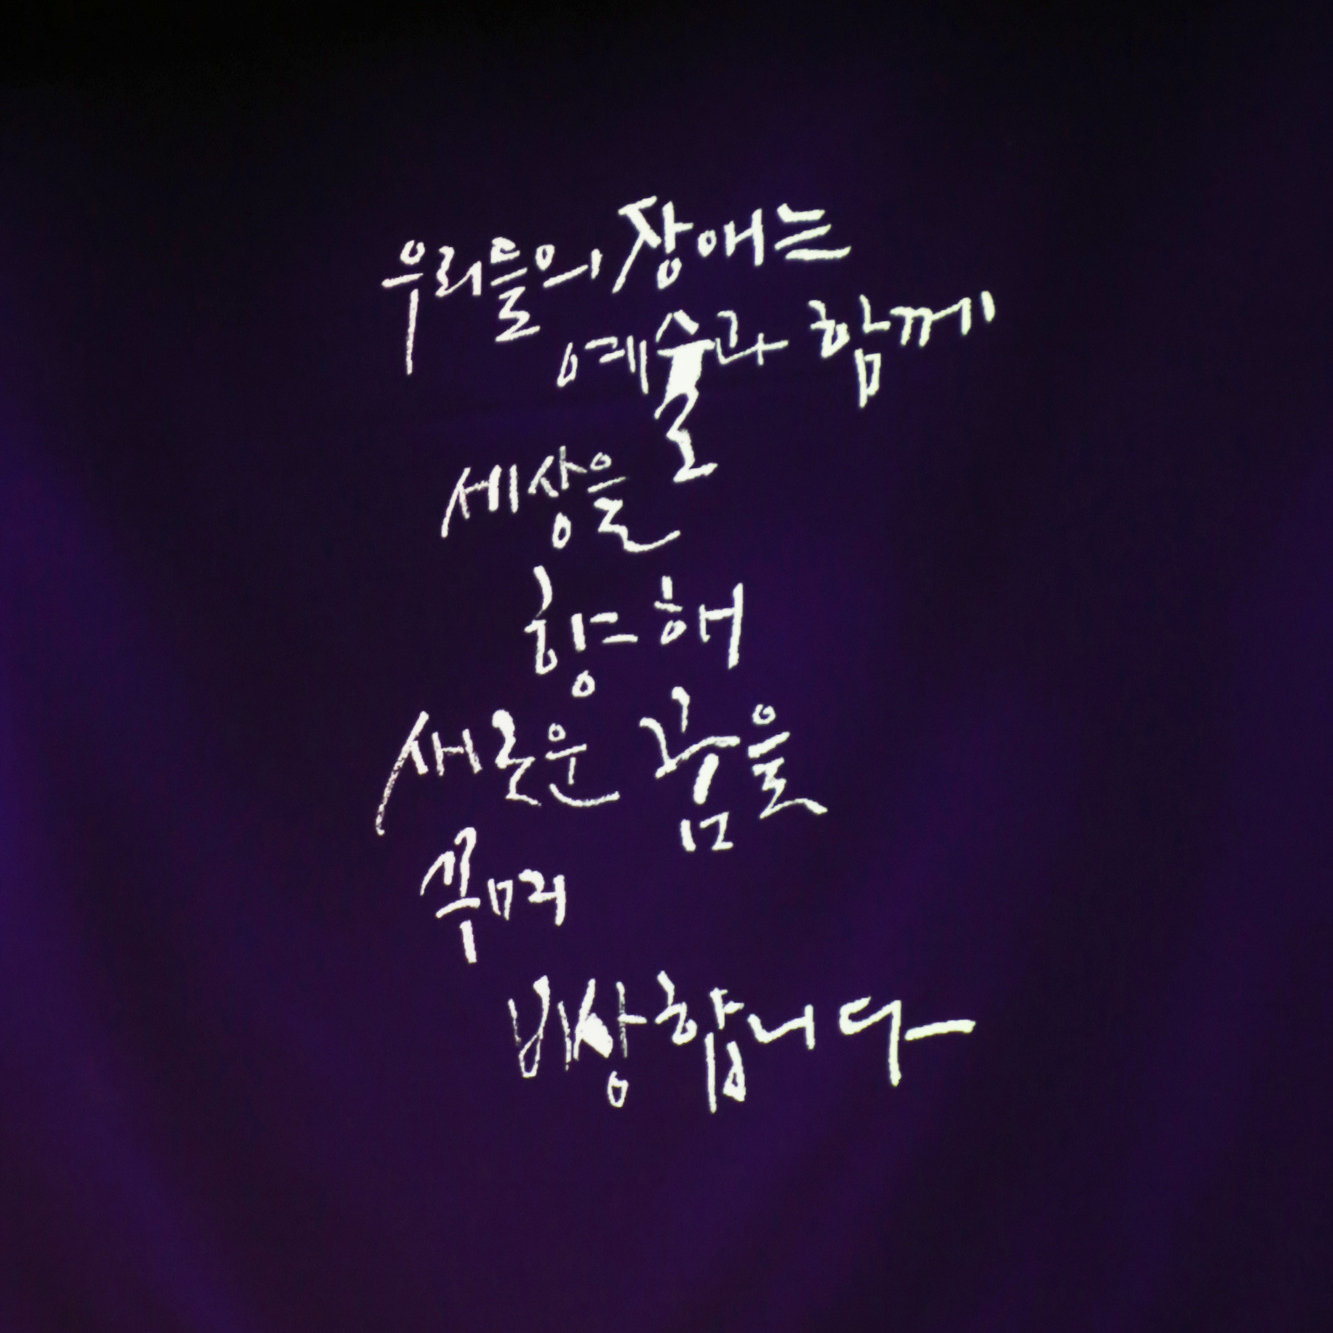 우리들의 장애는
예술과 함께
세상을
향해
새로운 꿈을
꾸며
비상합니다